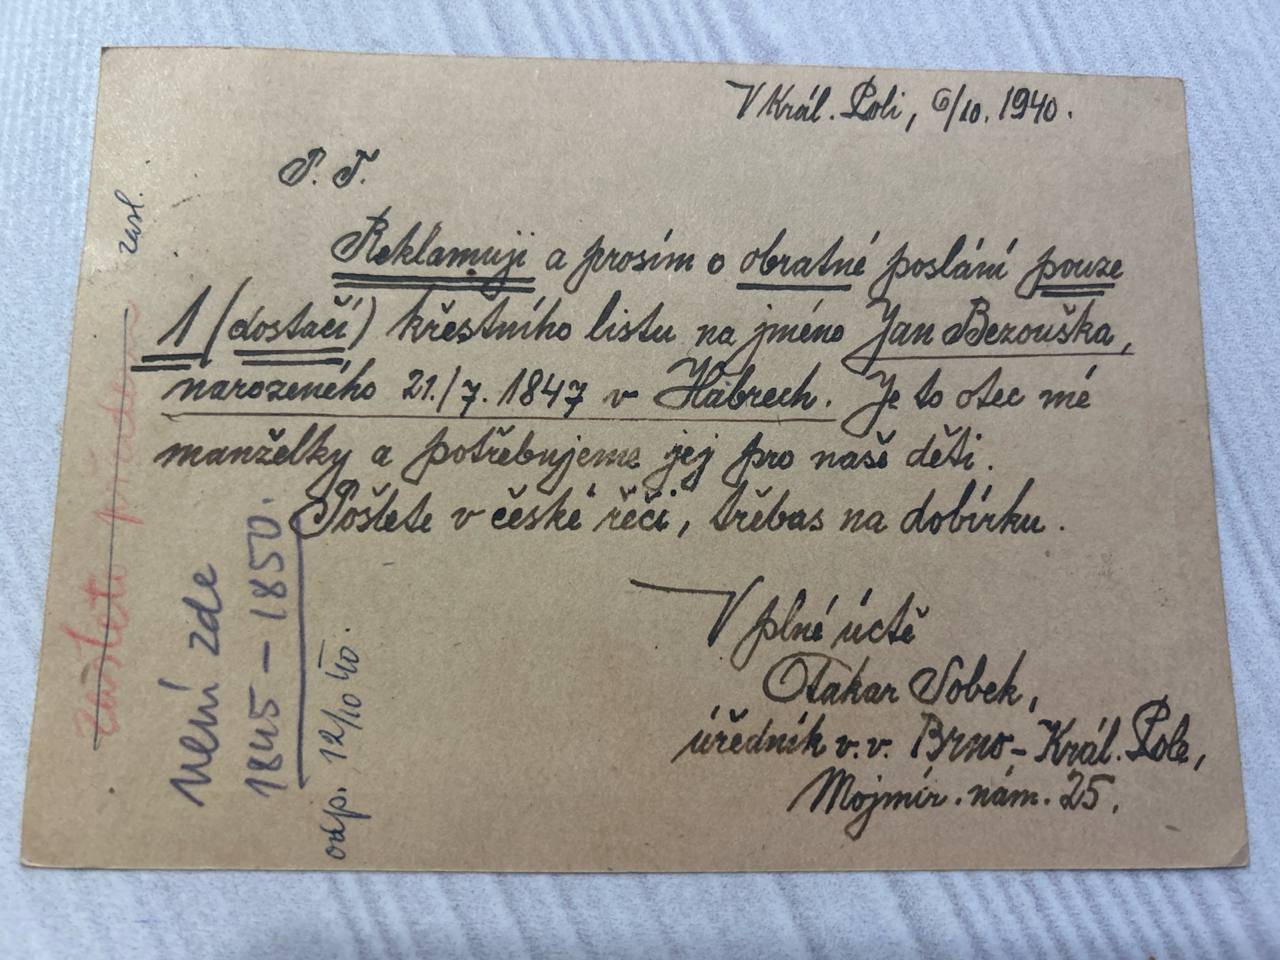 V Král. Poli, 6/10. 1940.
P. T.
Reklamuji a prosím o obratné poslání pouze
1 (dostačí) křestního listu na jméno Jan Bezouška,
narozeného 21./7. 1847 v Habrech. Je to otec mé
manželky a potřebujeme jej pro naše děti.
Pošlete v české řeči, třebas na dobírku.
V plné úctě
Otakar Sobek,
úředník v. v. Brno-Král. Pole,
Mojmír. nám. 25.
zasl.
není zde
1845 - 1850.
odp. 12/10 40.